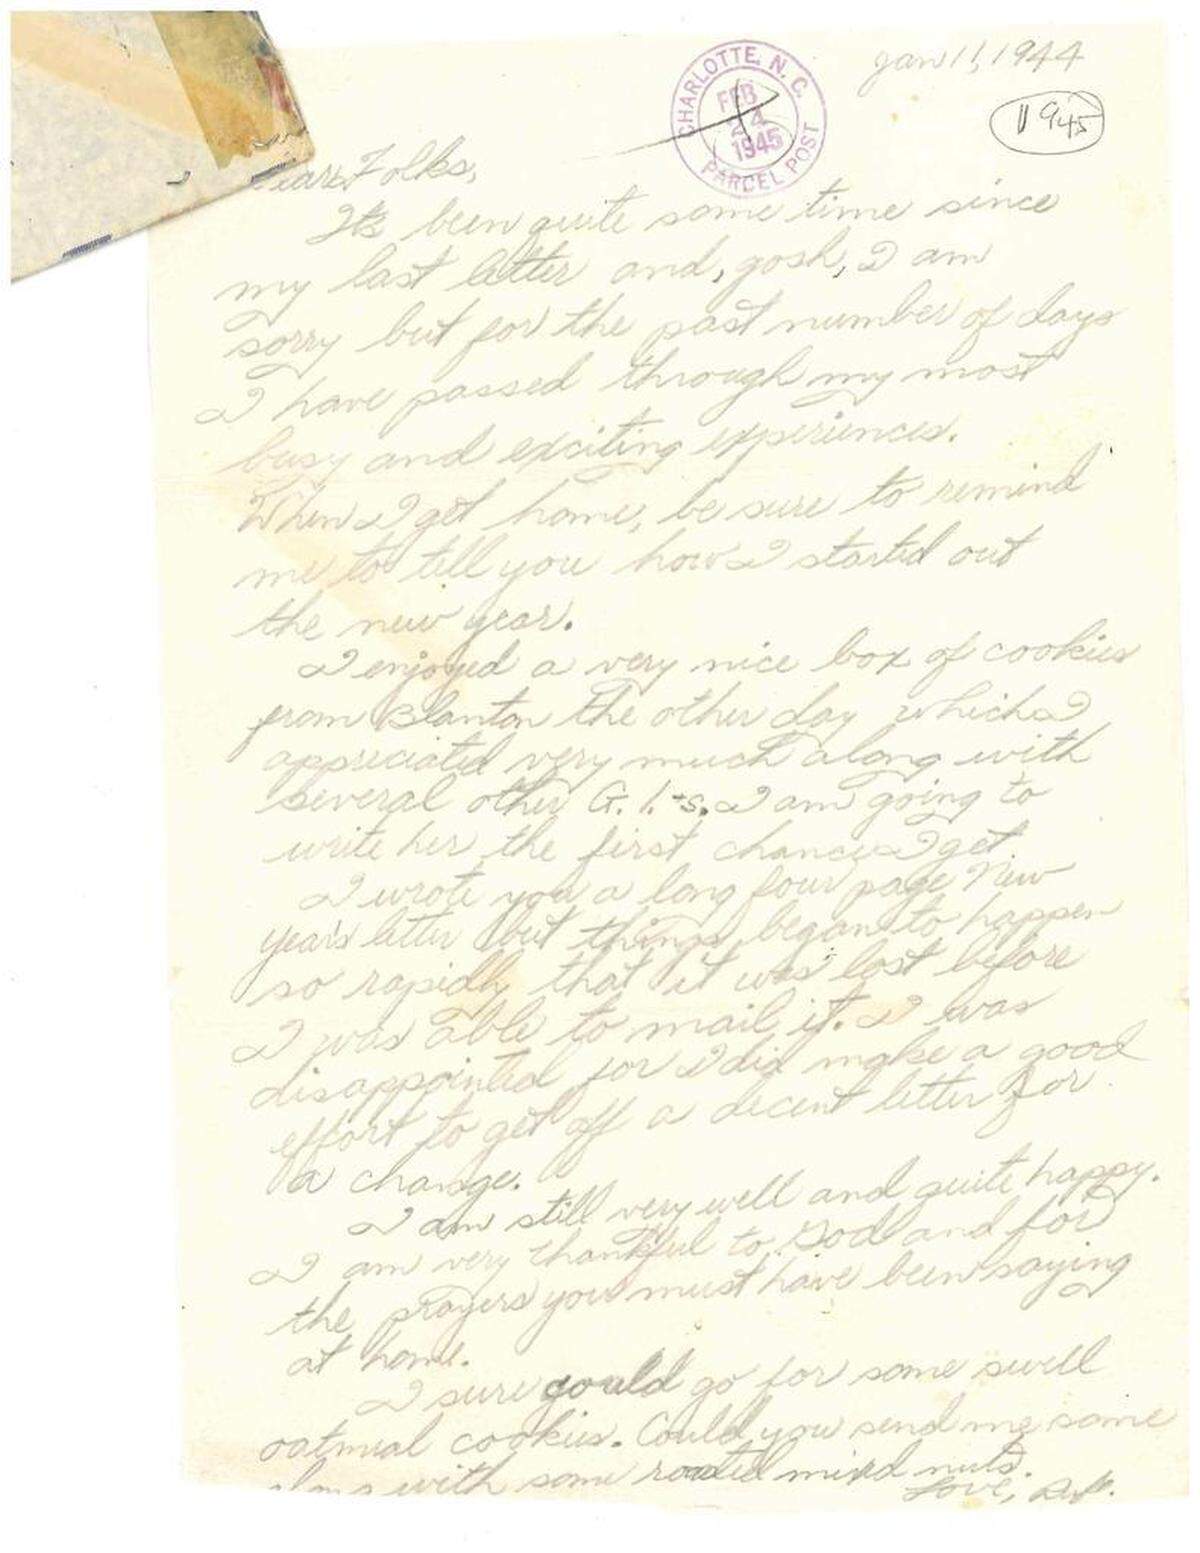 Jan 11, 1944
1945
CHARLOTTE, N. C.
FEB
24
1945
PARCEL POST
Dear Folks,
Its been quite some time since
my last letter and, gosh, I am
sorry but for the past number of days
I have passed through my most
busy and exciting experiences.
When I get home, be sure to remind
me to tell you how I started out
the new year.
I enjoyed a very nice box of cookies
from Blanton the other day which I
appreciated very much along with
several other G.I.-s. I am going to
write her the first chance I get
I wrote you a long four page New
years letter but things began to happen
so rapidly that it was lost before
I was able to mail it. I was
disappointed for I did make a good
effort to get off a decent letter for
a change.
I am still very well and quite happy.
I am very thankful to God and for
the prayers you must have been saying
at home.
I sure could go for some swell
oatmeal cookies. Could you send me some
along with some roasted mixed nuts.
Love,